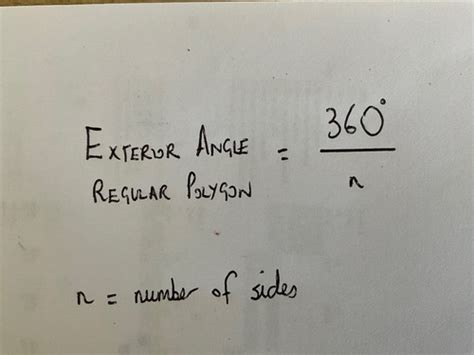 EXTERIOR ANGLE = 360°
REGULAR POLYGON n
n = number of sides